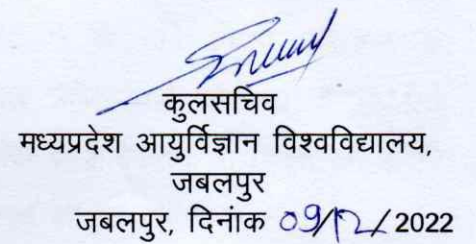 कुलसचिव
मध्यप्रदेश आयुर्विज्ञान विश्वविद्यालय,
जबलपुर
जबलपुर, दिनांक 09/12/2022